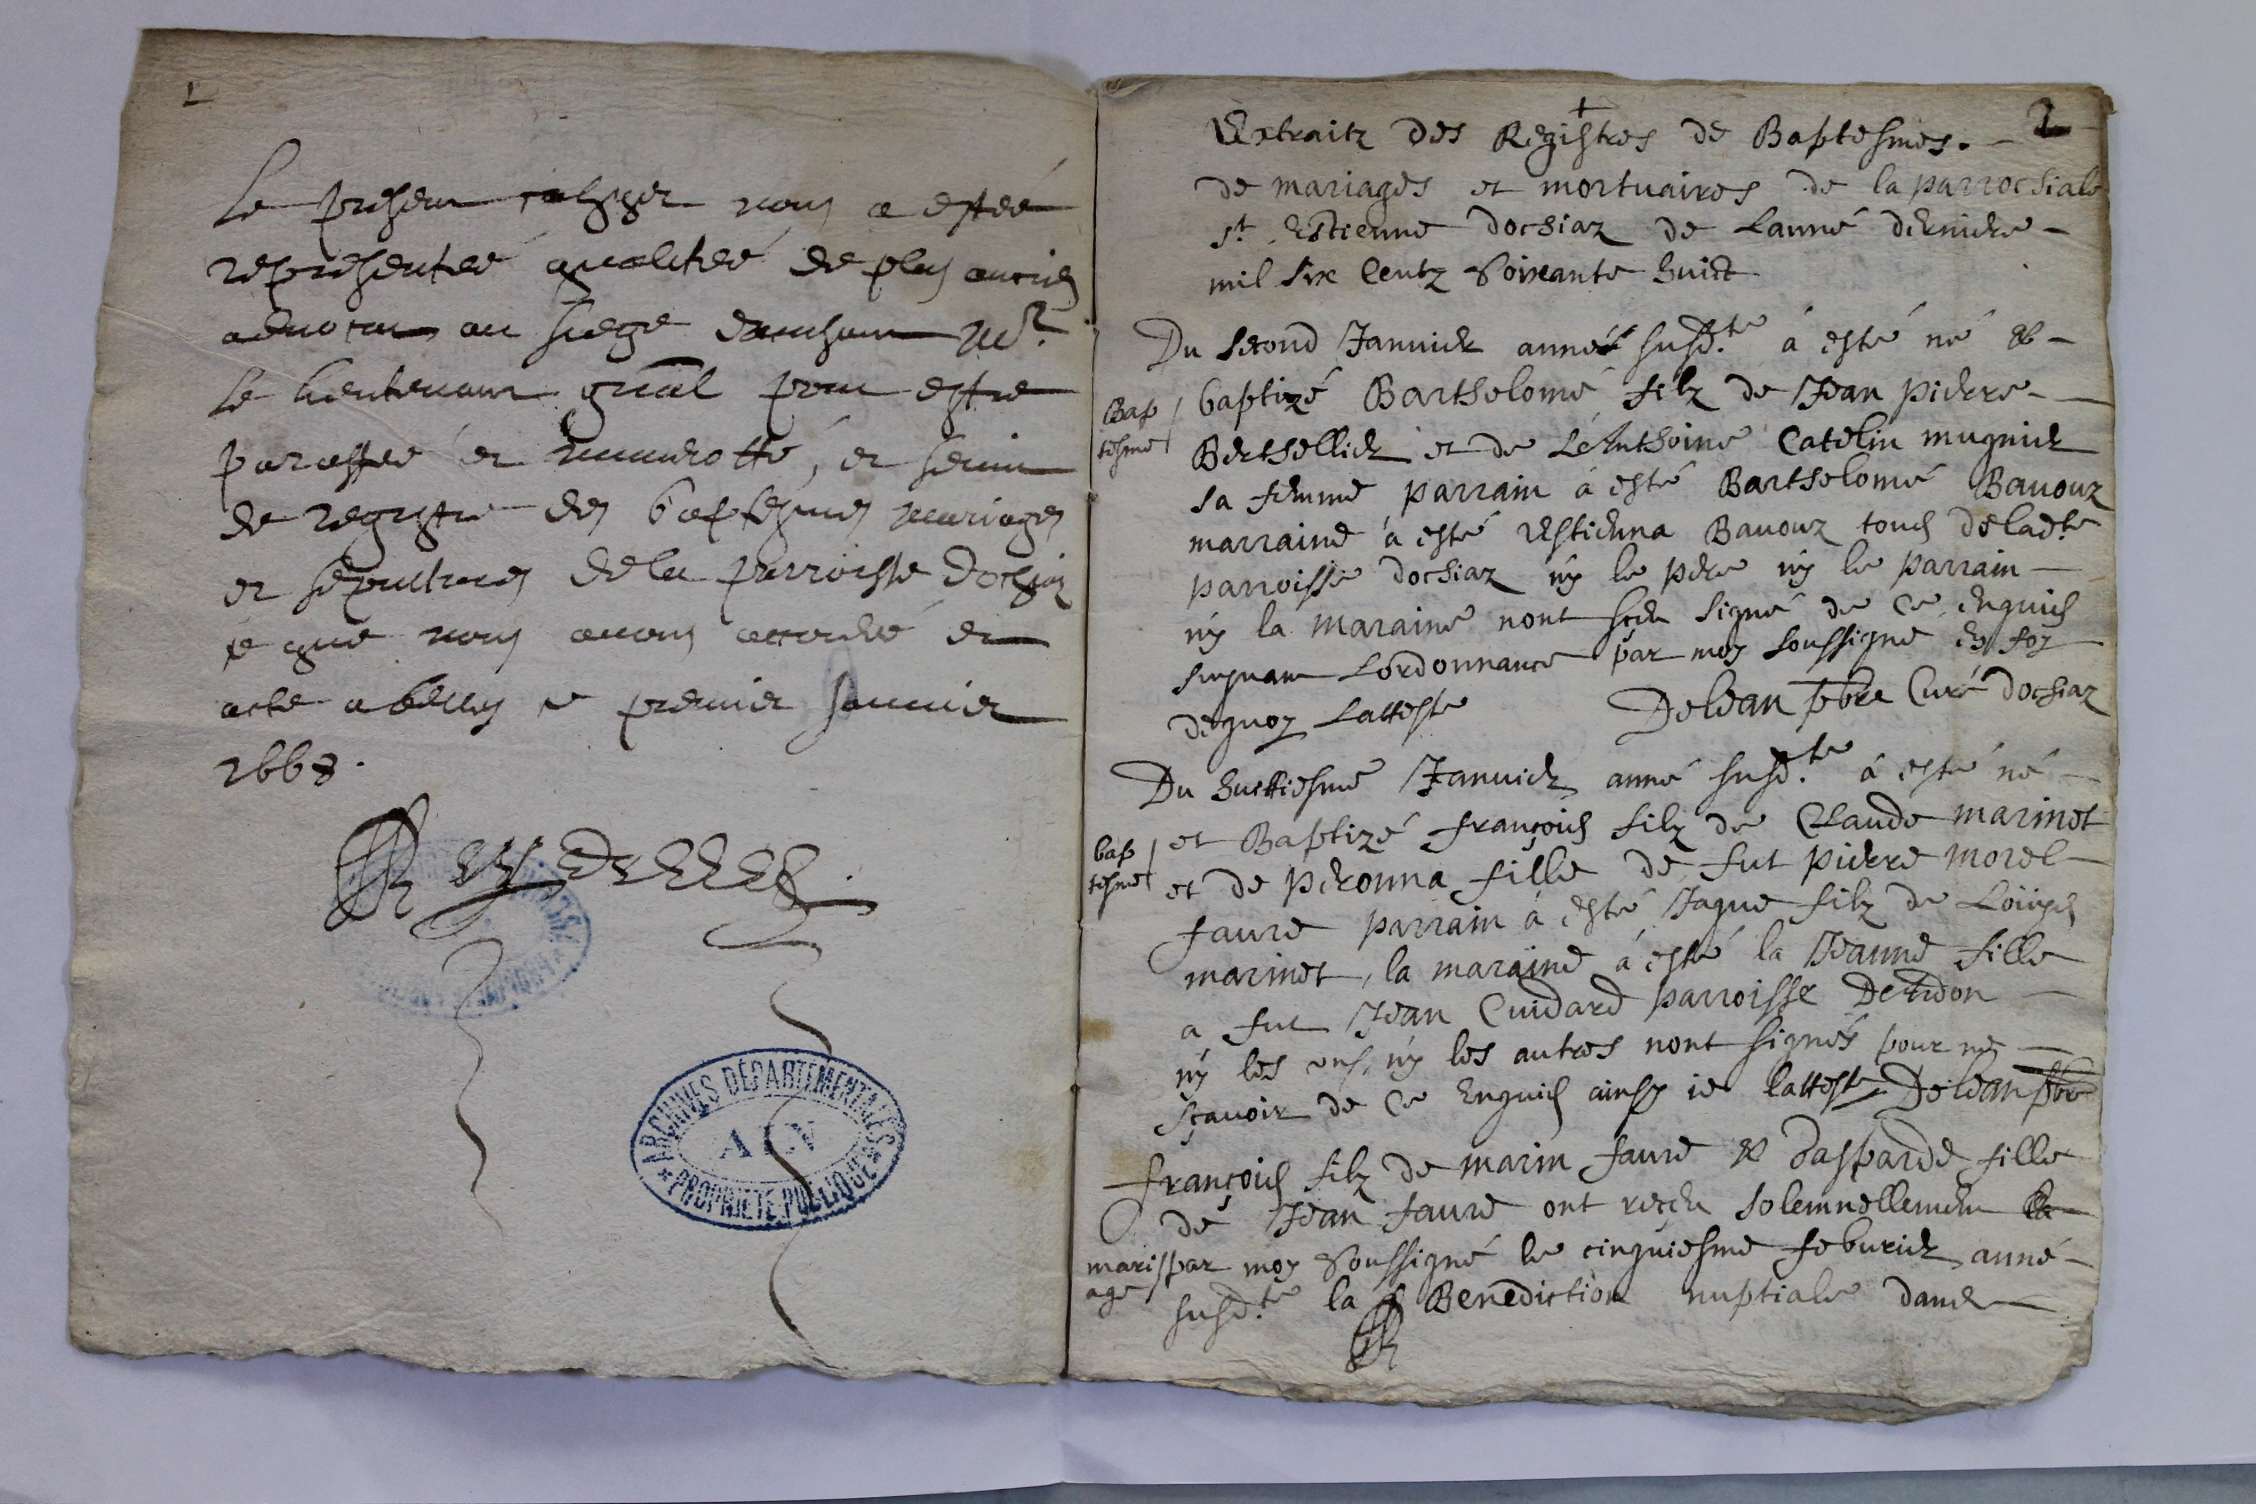 1
Le present cahyer nous a esteé
representeé qualiteé de plus ancien
advocat au siege dausant Mr.
le lieutenant gnal pour estre
paraffeé et numerotté, et servir
de registre des baptesmes mariages
et sepultures de la parroisse dochiaz
ce que nous avons accordé et
acte a belley ce premier Janvier
1668.
ARCHIVES DÉPARTEMENTALES
AIN
PROPRIÉTÉ PUBLIQUE
2
Extraitz des Registres de Baptesmes.
de mariages et mortuaires de la parrochiale
st. Estienne dochiaz de Lanné derniere
mil six Centz Soixante huict
Du second Janvier anneé susd.te á esté né &
baptizé Barthelomé filz de Jean pierre
Bap
tesme
Berthellier et de LeAnthoine Catelin mugnier
sa femme parrain á esté Barthelomé Bavouz
marraine á esté Estienna Bavouz tous de lad.te
parroisse dochiaz ny le pere ny le parrain
ny la maraine nont sceu signé de ce enquis
suyvant Lordonnance par moy soussigné en foy
dequoy Latteste Delean pbre Curé dochiaz
Du huittiesme Janvier anné susd.te á esté né
et Baptizé françois filz de Claude marinet
bap
tesme
et de peronna fille de fut pierre morel
faure parrain á esté Jaque filz de Loüys
marinet, la maraine á esté la Jeanne fille
a fut Jean Cuidard parroisse Dardon
ny les uns, ny les autres nont signés pour ne
sçavoir de ce Enquis ainsy ie latteste Delean pbre
françois filz de marin faure & Gasparde fille
de Jean faure ont receu solemnellement la
mari
age
par moy soussigné le cinquiesme feburier anné
susd.te la Benediction nuptiale dans